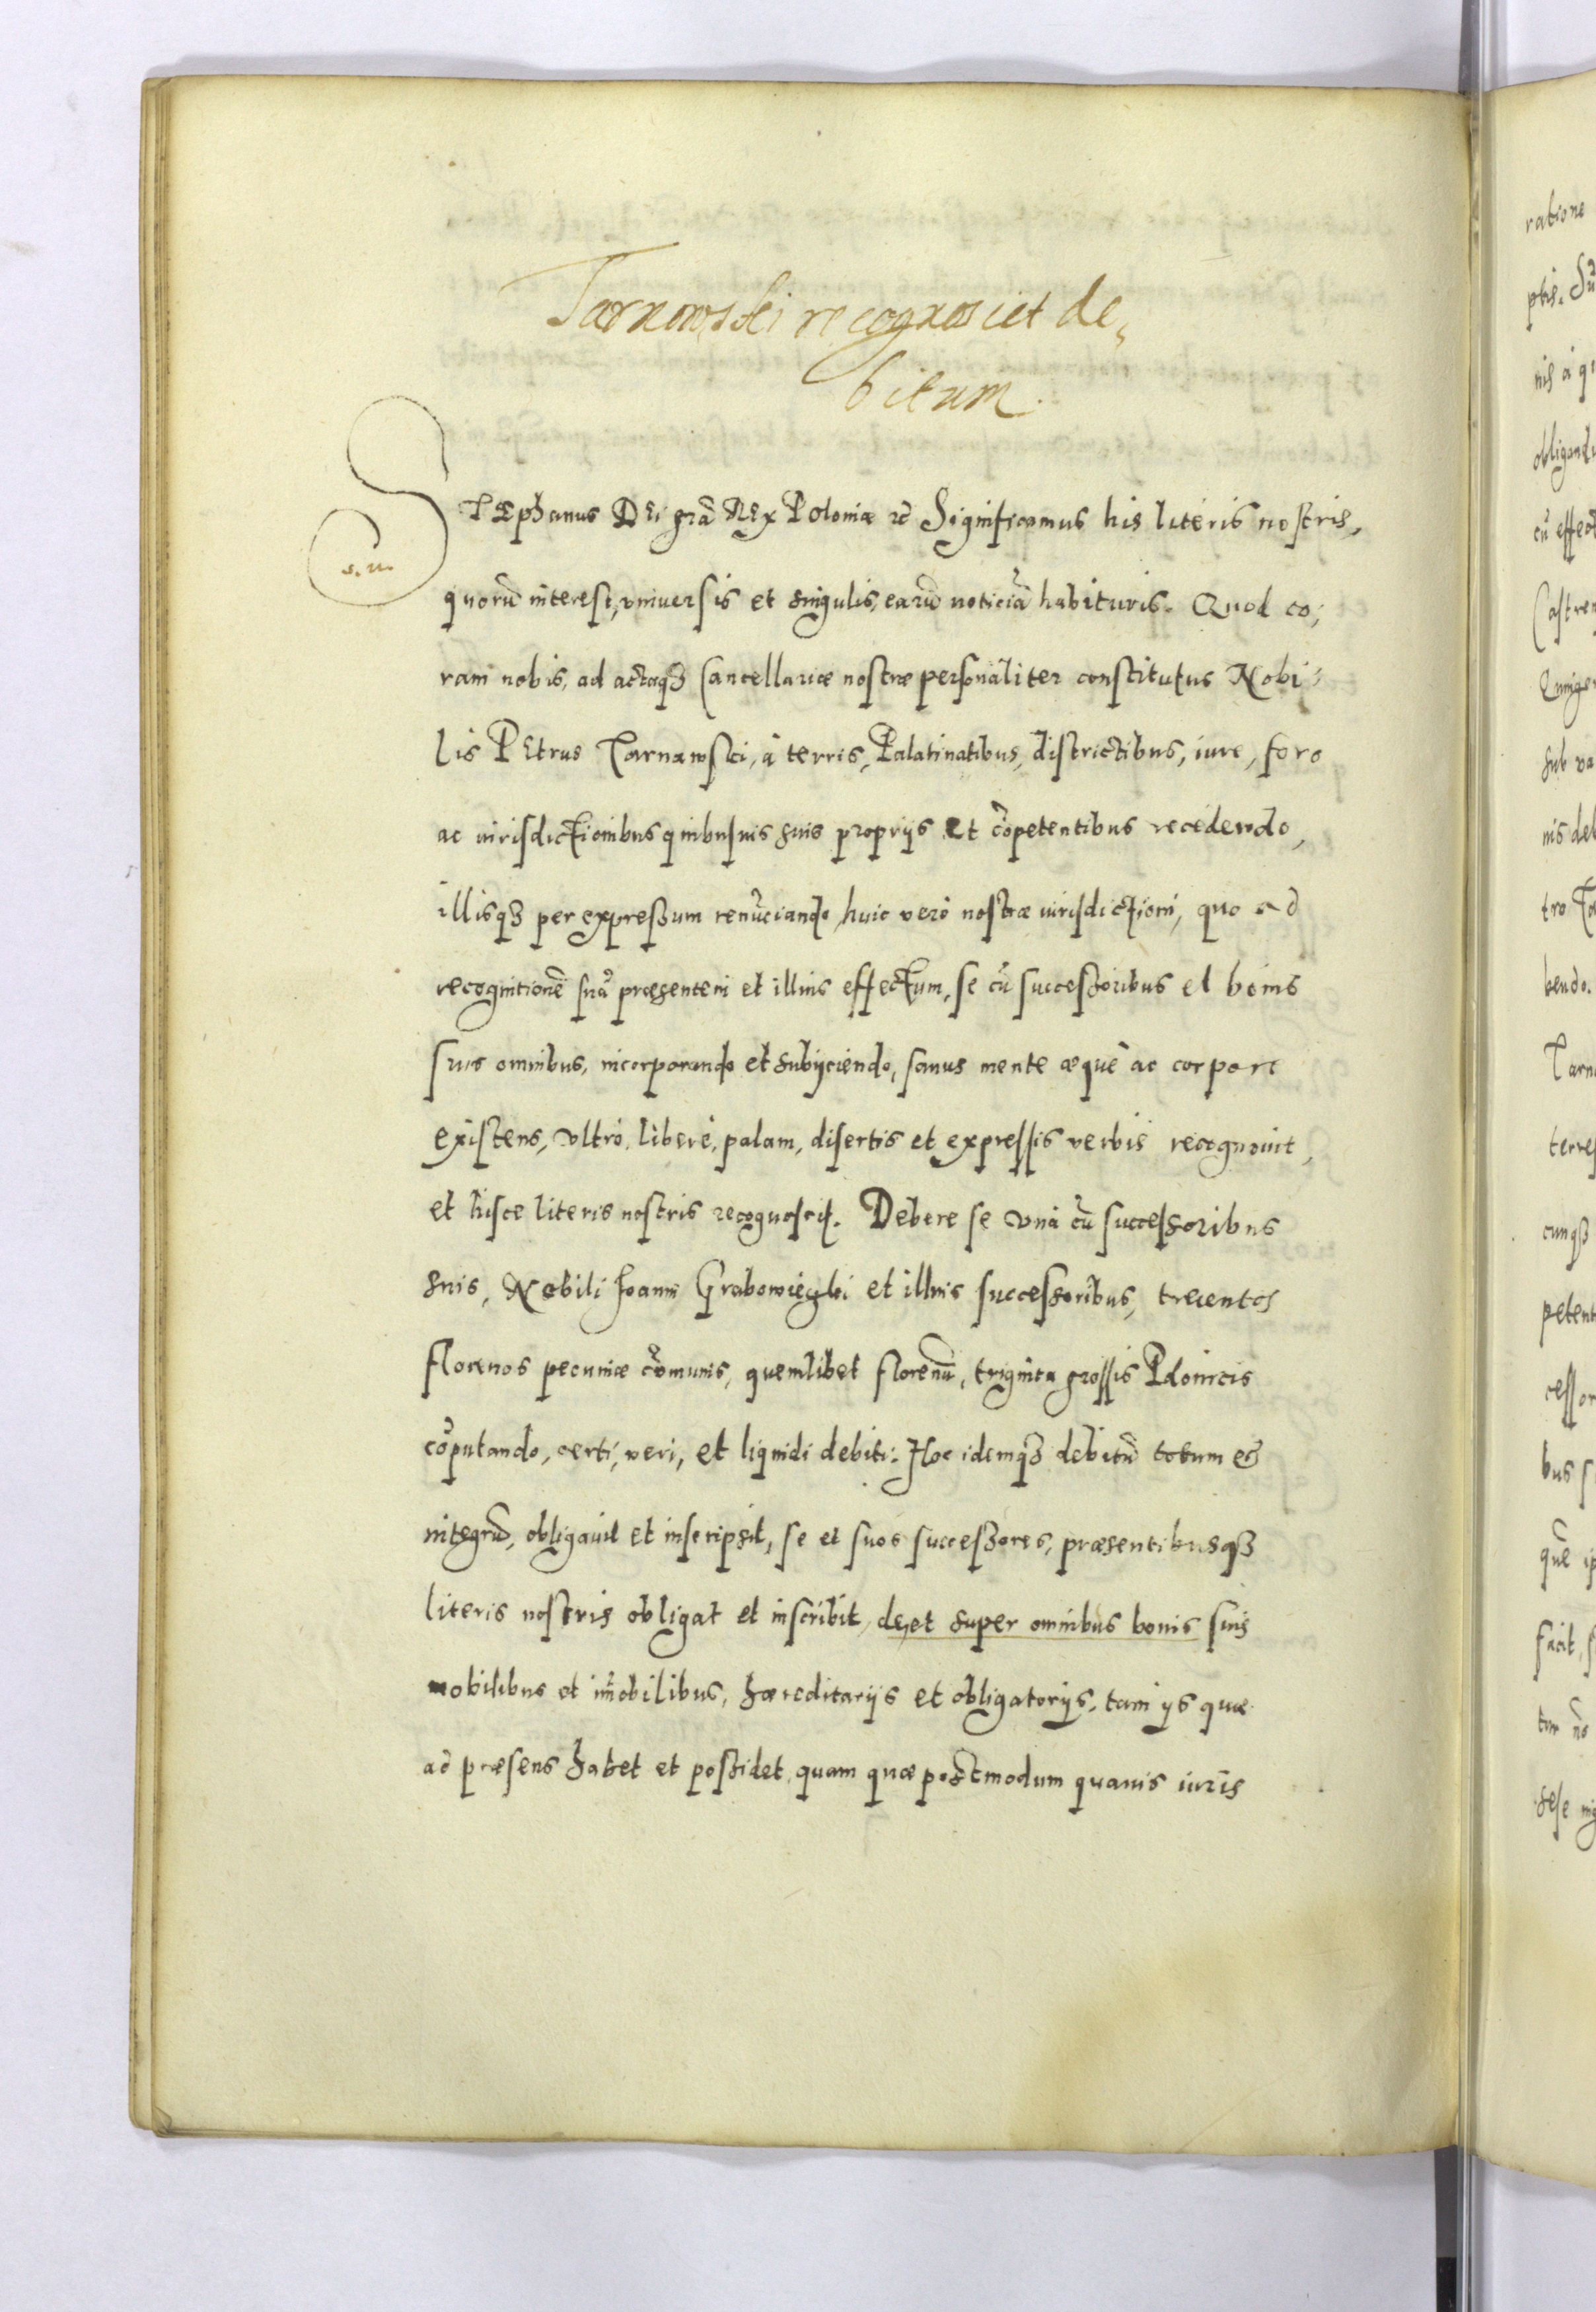 Tarnowski recognoscit de„
bitum.
STEphanus DEi grã REx Poloniæ ꝛc̃ Significamus his literis nostris,
s. m.
quorũ interest, vniuersis et singulis, earũ noticiã habituris. Quod co;
ram nobis, ad actaqꝫ Cancellariæ nostræ personaliter constitutus Nobi;
lis PEtrus Tarnawski, à terris, Palatinatibus, districtibus, iure, foro
ac iurisdictionibus quibusuis suis proprijs et cõpetentibus recedendo,
illisqꝫ per expressum renũciando, huic verò nostræ iurisdictioni, quo ad
recognitionẽ suã præsentem et illius effectum, se cũ successoribus et bonis
suis omnibus, incorporando et subijciendo, sanus mente æquè ac corpore
existens, vltrò, liberè, palam, disertis et expressis verbis recognouit,
et hisce literis nostris recognoscit. Debere se vnà cũ successoribus
suis, Nobili Joanni Grabowieczki et illius successoribus, trecentos
florenos pecuniæ cõmunis, quemlibet florenũ, triginta grossis Polonicis
cõputando, certi, veri, et liquidi debiti: Hoc idemqꝫ debitũ totum et
integrũ, obligauit et inscripsit, se et suos successores, præsentibusqꝫ
literis nostris obligat et inscribit, de, et super omnibus bonis suis
mobilibus et im̃obilibus, hæreditarijs et obligatorijs, tam ijs quæ
ad præsens habet et possidet, quam quæ postmodum quauis iuris